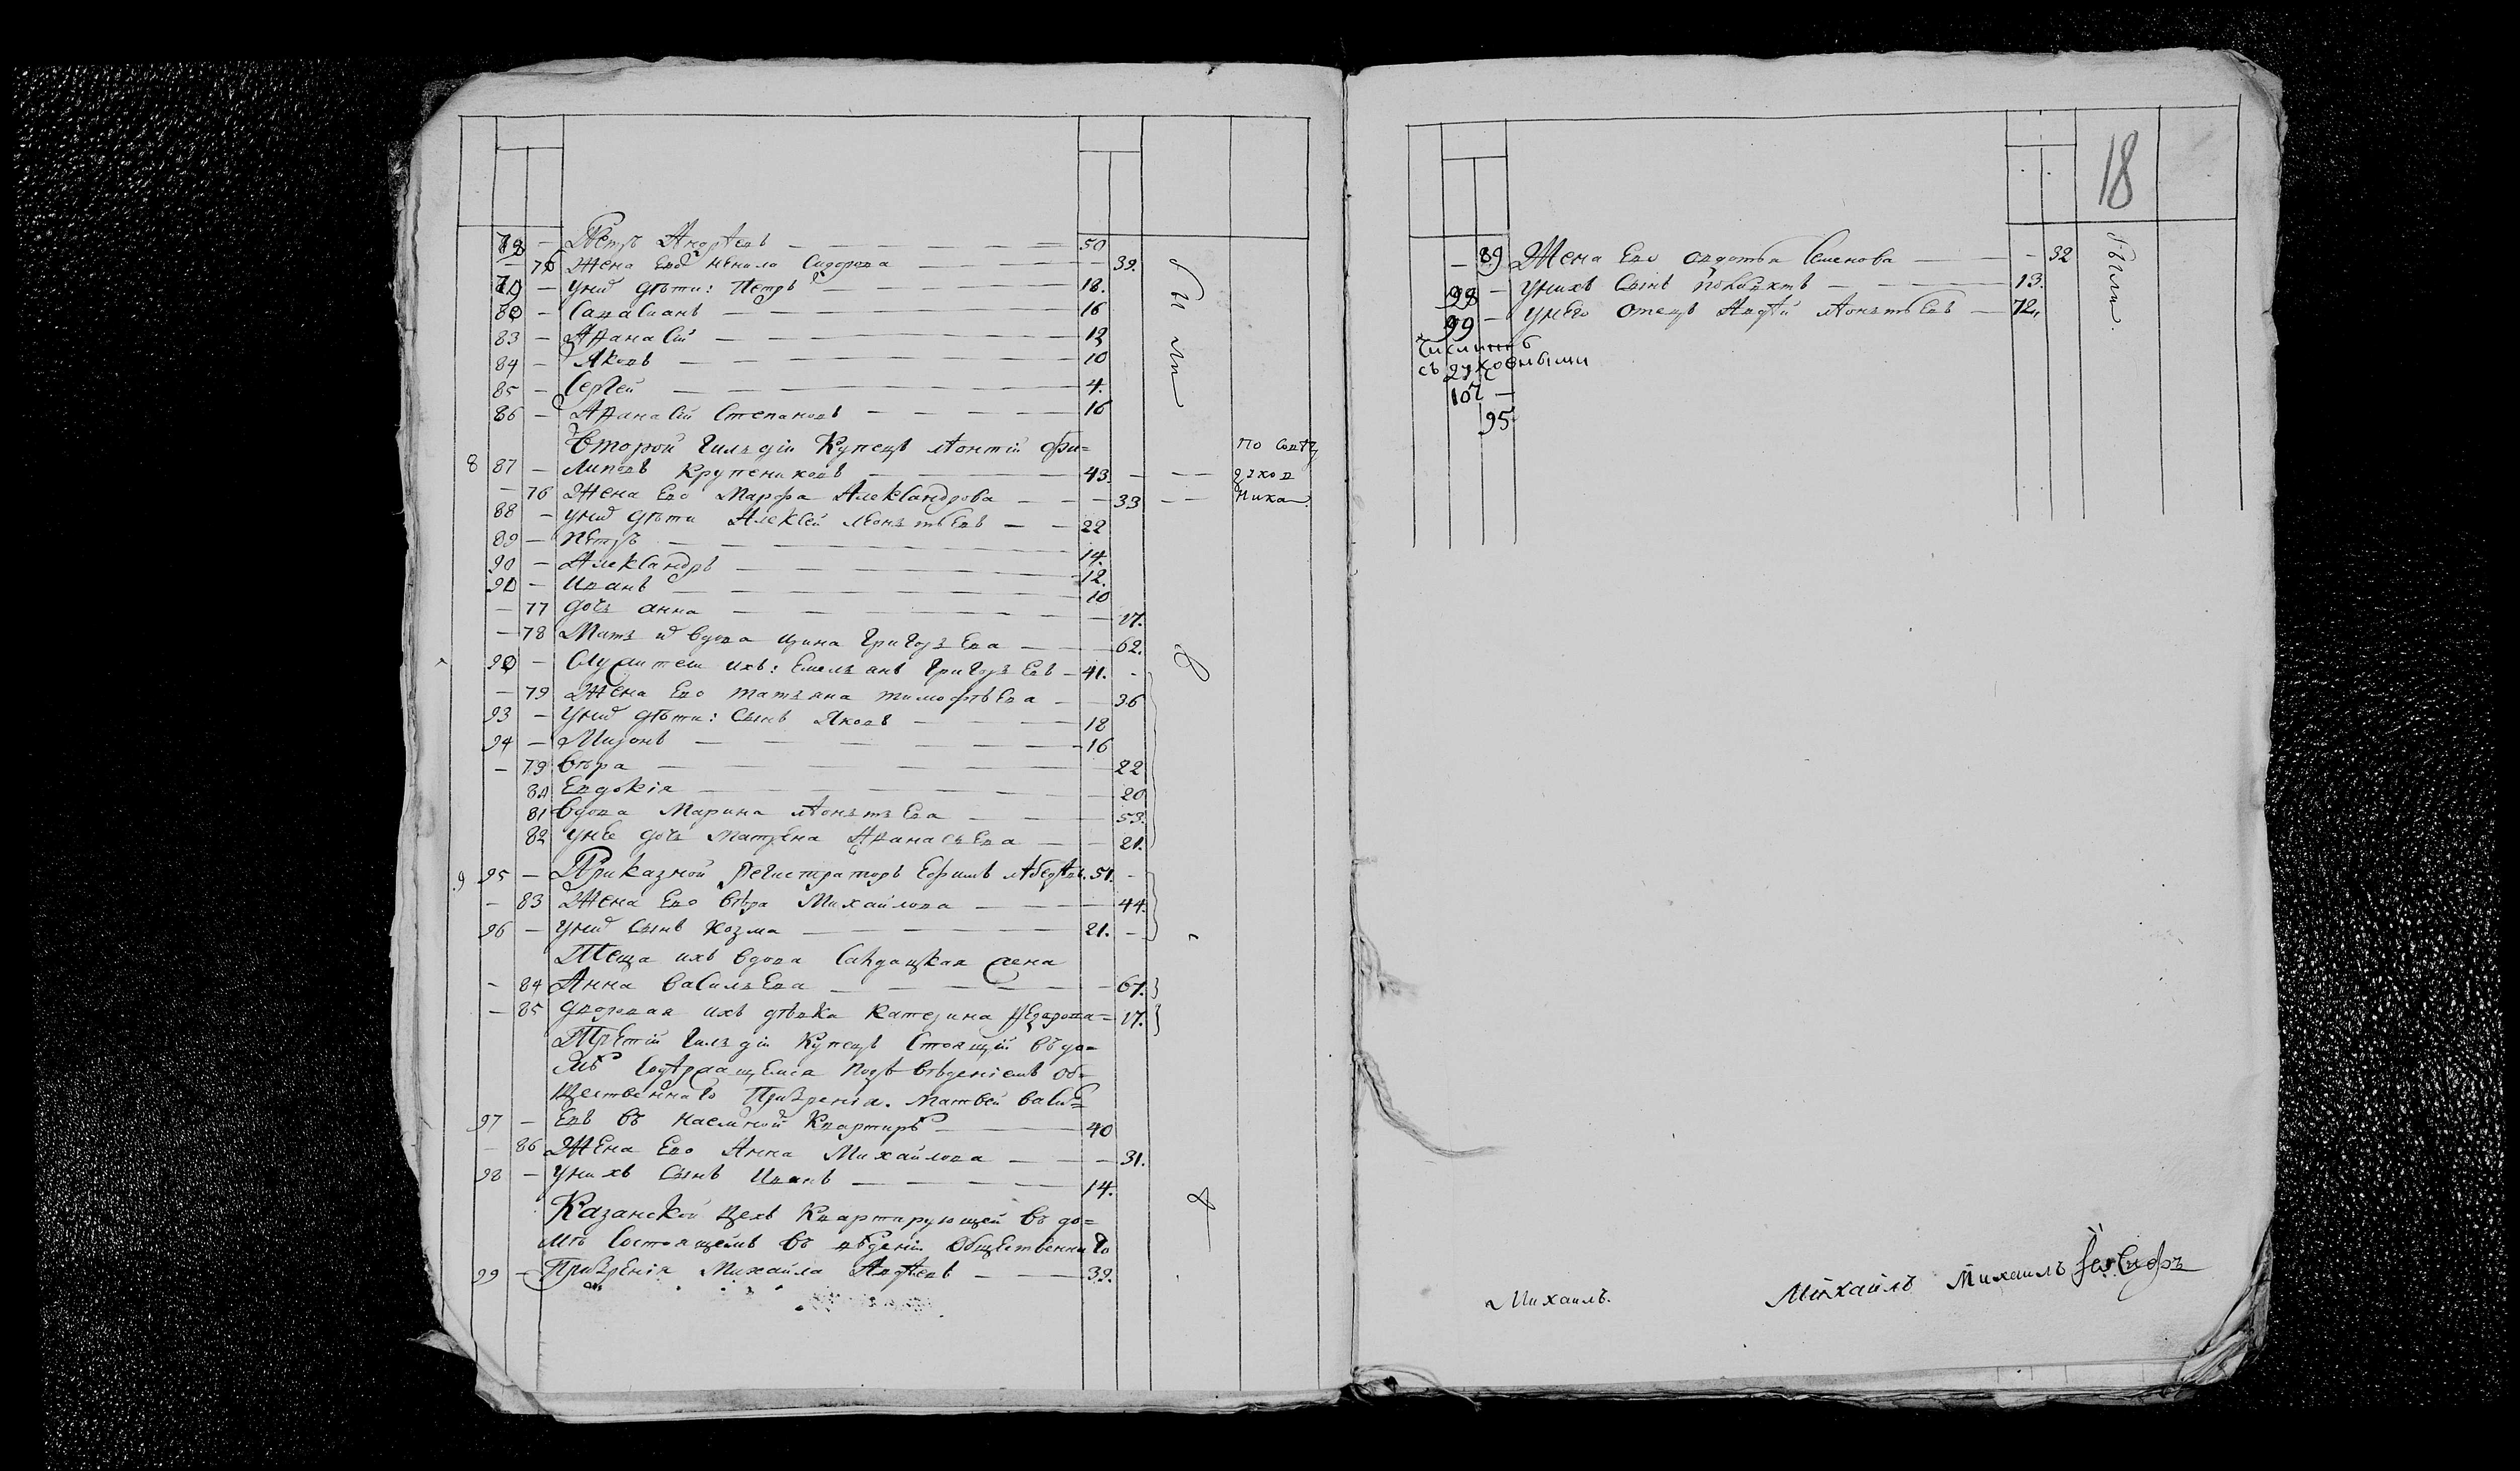 78 — Петръ Андреевъ — 50
— 75 Жена Ево Ненила Сидорова — 39.
79 — У них дѣти: Петръ — 18.
80 — Савасианъ — 16
83 — Афанасій — 12
84 — Яковъ — 10
85 — Сергей — 4.
86 — Афанасій Степановъ — 16
были
Второй Гильдіи Купецъ Леонтій Фи=
8 87 — липовъ Крупениковъ — 43.
— 76 Жена Ево Марфа Александрова — 33
88 — У них дѣти Алексей Леонтьевъ — 22
89 — Петръ — 14.
90 — Александръ — 12.
91 — Иванъ — 10
— 77 дочь анна — 17.
— 78 Мать их вдова ирина Григорьева — 62.
— Служители ихъ: Емельянъ Григорьевъ — 41.
— 79 Жена Ево татьяна тимофѣева — 36
93 — У них дѣти: Сынъ Яковъ — 18
94 — Миронъ — 16
— 79 Вѣра — 22
80 Евдокія — 20
81 Вдова Марина Леонтьева — 53.
82 У нее дочь матрена Афанасьева — 21.
9 95 — Приказной Регистраторъ Ефимъ 51.
— 83 Жена Ево Вѣра Михайлова — 44.
96 — У них Сынъ Козма — 21.
Теща ихъ вдова Салдацкая жена
— 84 Анна Васильева — 67.
— 85 дворовая ихъ дѣвка Катерина Федорова = 17.
Третій Гильдіи Купецъ Стоящій въ до=
мѣ Содержащемся подъ вѣденіемъ Об=
щественнаго Призренія. Матвей Василь
97 — Евъ въ наемной Квартирѣ — 40
— 86 Жена Ево Анна Михайлова — 31.
98 — У нихъ Сынъ Иванъ — 14.
Казанской Цехъ Квартирующей въ до=
мѣ Состоящемъ въ вѣденіи Общественнаго
99 — Призренія Михайла Авдѣевъ — 39.
18
— 89 Жена Ево авдотья Семенова — 32
98 — У нихъ Сынъ — 13.
99 — У Него Отецъ Авдѣй Леонтьевъ — 72.
были.
числитъ
съ духовными
107 —
95
Михаилъ.
Михайлъ
Михаилъ